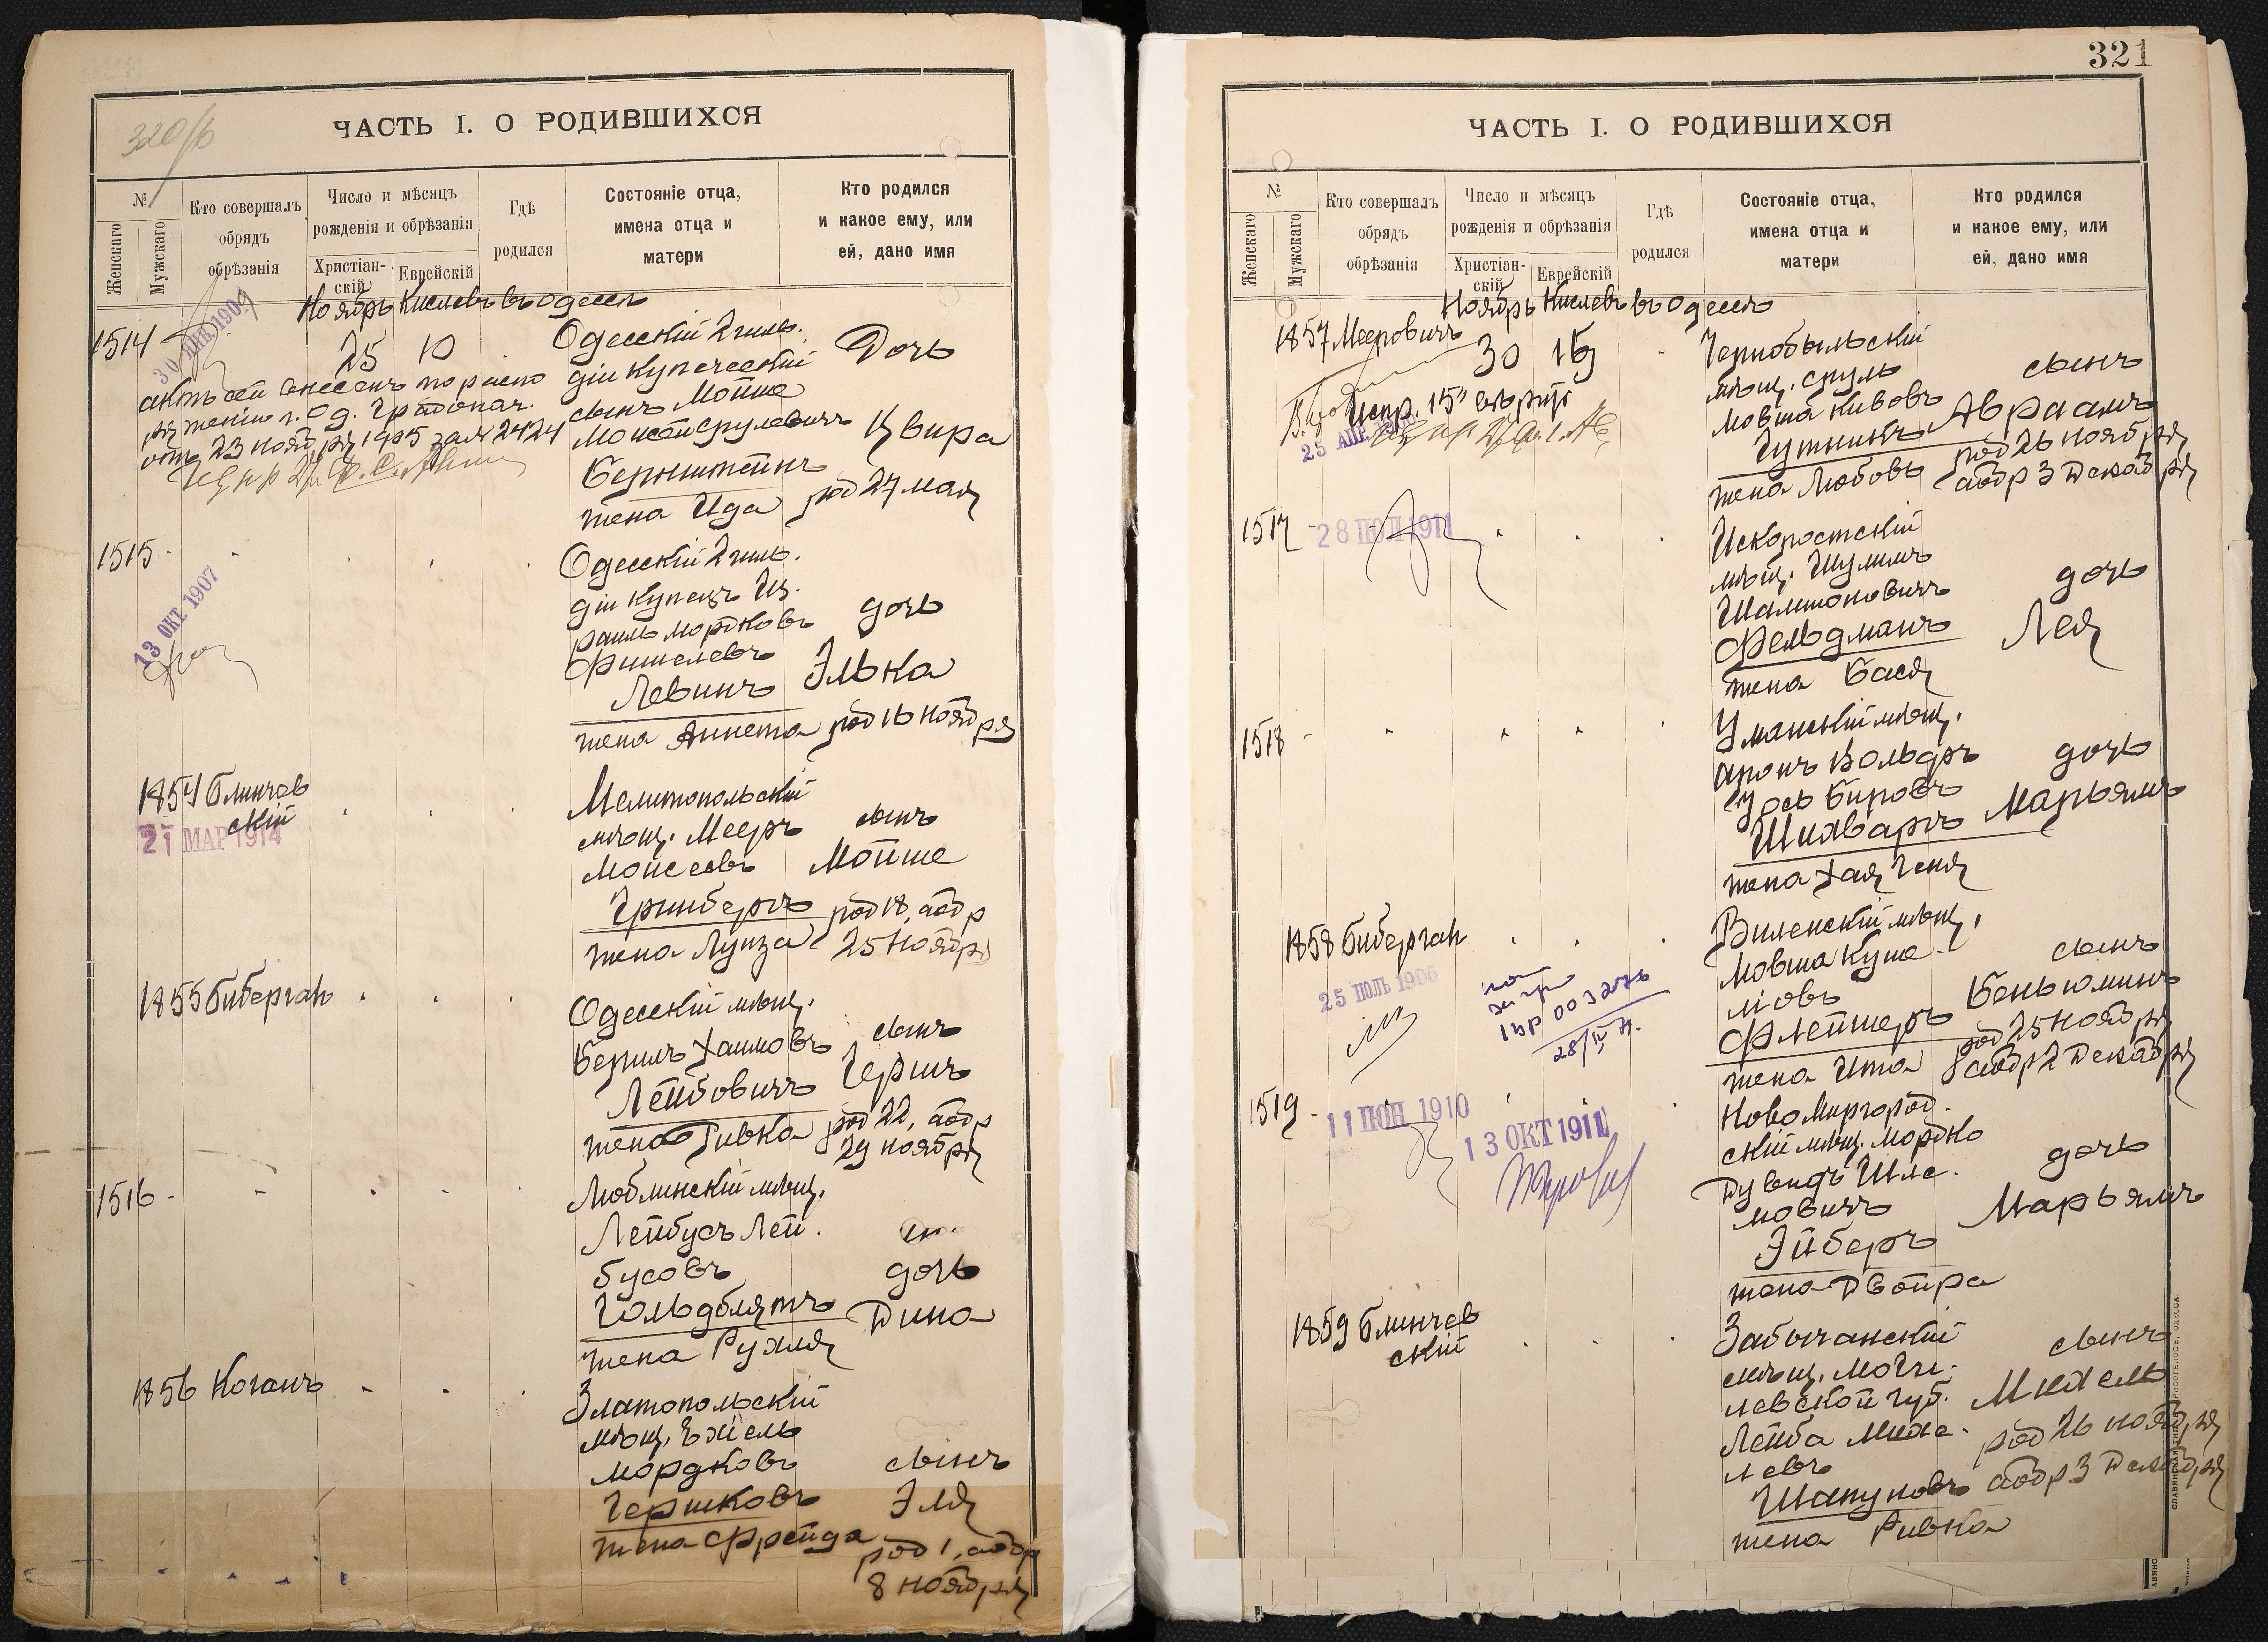 320/б
ЧАСТЬ I. О РОДИВШИХСЯ
№
Женскаго
Мужскаго
Кто совершалъ
обрядъ
обрѣзанія
Число и мѣсяцъ
рожденія и обрѣзанія
Христіан-
скій
Еврейскій
Гдѣ
родился
Состояніе отца,
имена отца и
матери
Кто родился
и какое ему, или
ей, дано имя
Ноябрь Кислевъ въ Одессѣ
1514
25 10
Одесскій 2 гиль.
діи купеческій
сынъ Мойше
Моисей Срулевичъ
Бернштейнъ
жена Ида
Дочь
Цвира
род 27 мая
актъ сей внесенъ по распо
ряженію г. Од. Градонач.
отъ 23 ноября 1905 за № 2424
1515
13 ОКТ 1907
Одесскій 2 гиль.
діи купецъ Из.
раиль Мордковъ
Фишелевъ
Левинъ
жена Аннета
дочь
Элька
род 16 ноября
1854 Блинчев
скій
21 МАР 1914
Мелитопольскій
мѣщ. Мееръ
Моисеевъ
Гринбергъ
жена Луиза
сынъ
Мойше
род 18, аобр
25 ноября
1855 Биберган
Одесскій мѣщ.
Берилъ Хаимовъ
Лейбовичъ
жена Ривка
сынъ
Гершъ
род 22, аобр
29 ноября
1516
Люблинскій мѣщ.
Лейбусъ Лей.
бусовъ
Гольдблятъ
жена Рухля
дочь
Дина
1856 Коганъ
Златопольскій
мѣщ. Ехіель
Мордковъ
Гершковъ
жена Фрейда
сынъ
Эля
род 1, аобр
8 ноября
321
ЧАСТЬ I. О РОДИВШИХСЯ
№
Женскаго
Мужскаго
Кто совершалъ
обрядъ
обрѣзанія
Число и мѣсяцъ
рожденія и обрѣзанія
Христіан-
скій
Еврейскій
Гдѣ
родился
Состояніе отца,
имена отца и
матери
Кто родился
и какое ему, или
ей, дано имя
Ноябрь Кислевъ въ Одессѣ
1857 Мееровичъ
30 15
Чернобыльскій
мѣщ. Сруль
Мовша Кивовъ
Гутникъ
жена Любовь
сынъ
Авраамъ
род 26 ноября
аобр 3 Декабря
1517
28 ІЮЛ 1911
Искоростскій
мѣщ. Шулимъ
Шамшоновичъ
Фельдманъ
жена Бася
дочь
Лея
1518
Уманскій мѣщ.
Аронъ Вольфъ
Шихваргъ
жена Хая Геня
дочь
Марьямъ
1858 Биберган
25 ІЮЛЬ 1906
28/IV
Виленскій мѣщ.
Мовша Куше.
ліовъ
Флейшеръ
жена Ита
сынъ
Беньюминъ
род 25 ноября
аобр 2 Декабря
1519
11 ІЮН 1910
13 ОКТ 1911
Новомиргород.
скій мѣщ. Мордко
Дувидъ Шле.
мовичъ
Эйберъ
жена Двойра
дочь
Марьямъ
1859 Блинчев
скій
Забычанскій
мѣщ. Моги.
левской губ.
Лейба Михе.
левъ
Шапуновъ
жена Ривка
сынъ
Михель
род 26 ноября
аобр 3 Декабря